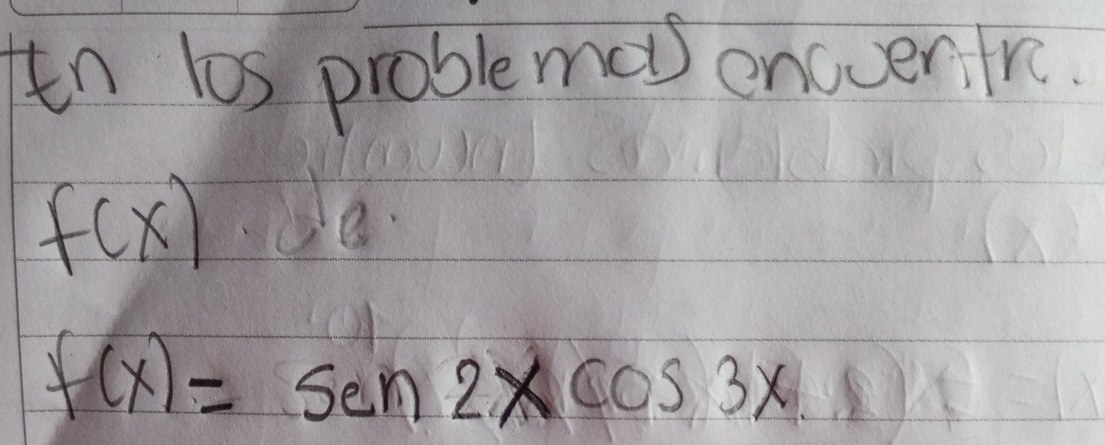 En los problemas encuentre.
f(x). de.
f(x) = sen 2x cos 3x.